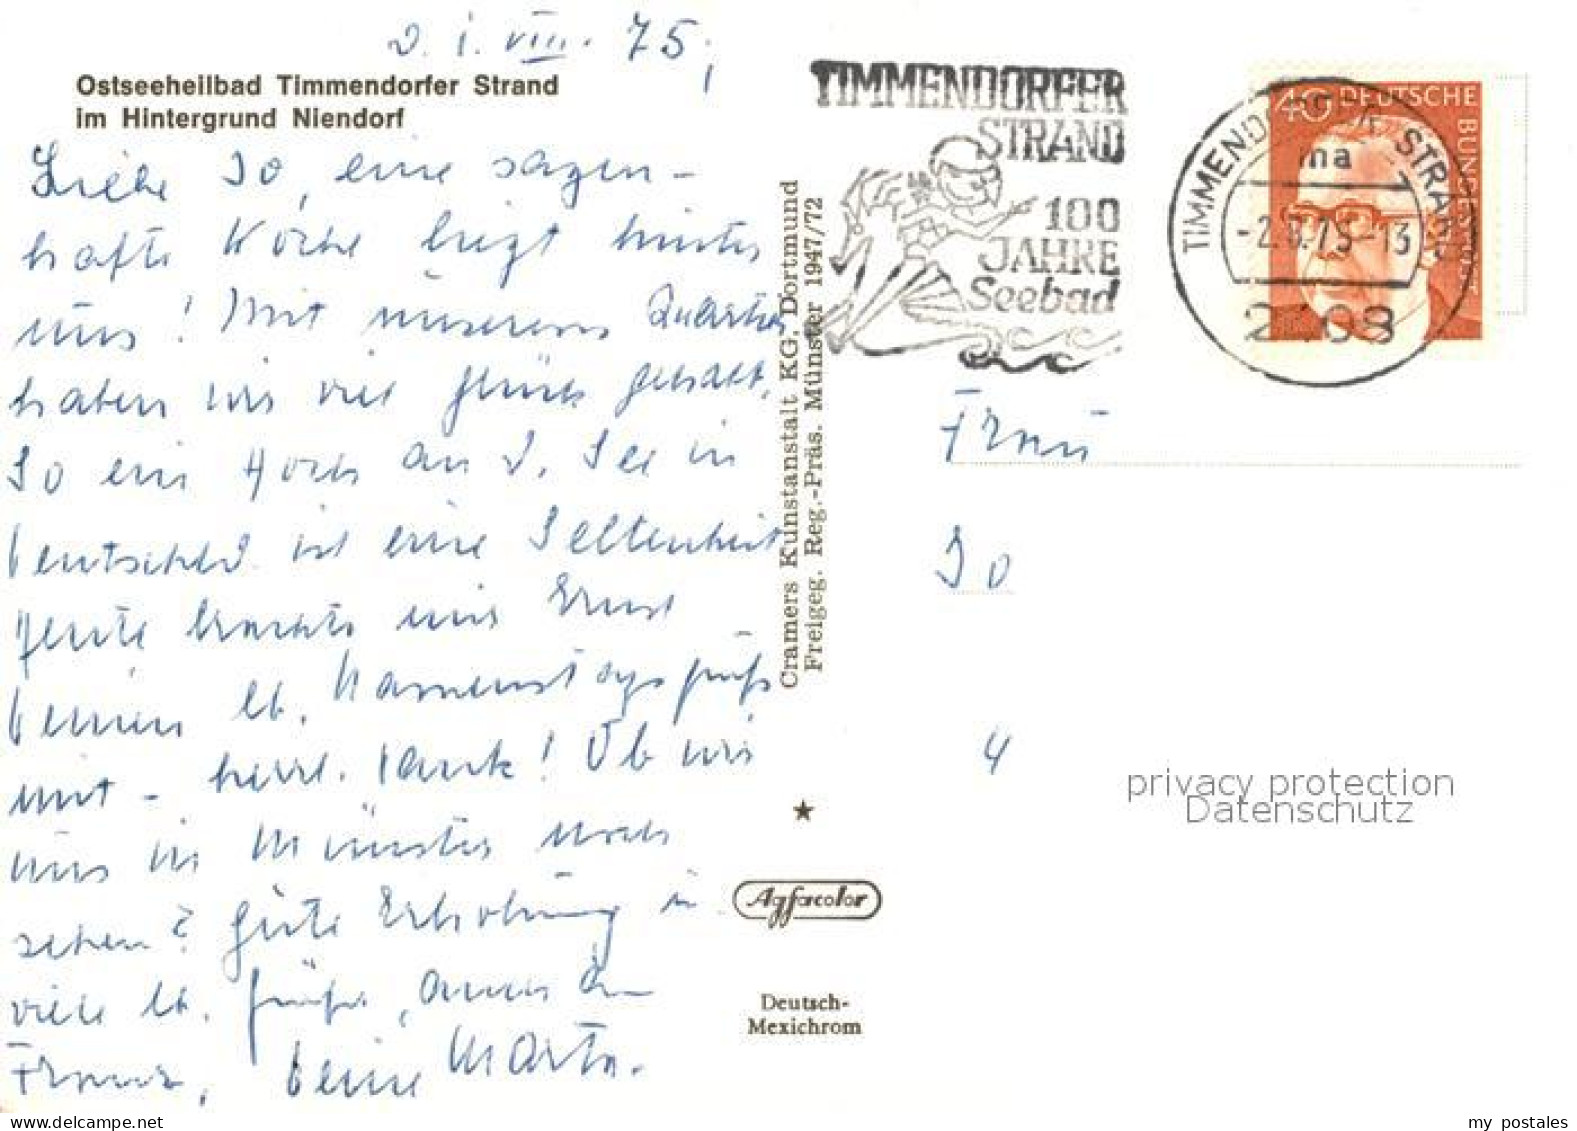 d. 1. VIII. 75,
Ostseeheilbad Timmendorfer Strand
im Hintergrund Niendorf
Liebe Jo, eine sagen-
hafte Woche liegt hinter
uns! Mit unserem Quartier
haben wir viel Glück gehabt,
So ein Hoch an d. See in
Deutschld. ist eine Seltenheit
Heute brachte mir Ernst
Deinen lb. Namenstagsgruß
mit - herzl. Dank! Ob wir
uns in Münster noch
sehen? Gute Erholung u.
viele lb. Grüße, auch an
Franz, Deine Marta.
Cramers Kunstanstalt KG, Dortmund
Freigeg. Reg.-Präs. Münster 1947/72
★
Agfacolor
Deutsch-
Mexichrom
TIMMENDORFER
STRAND
100
JAHRE
Seebad
TIMMENDORFER STRAND
ma
-2.8.75-13
2408
40 DEUTSCHE BUNDESPOST
Frau
Jo
4
privacy protection
Datenschutz
my postales